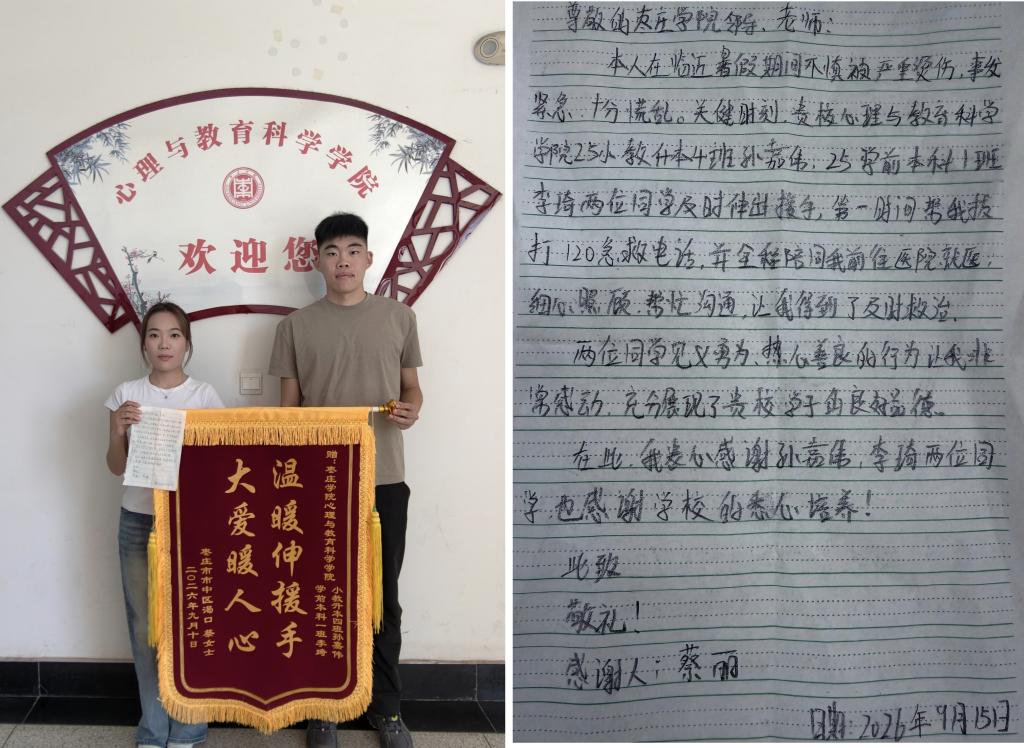 心理与教育科学学院
欢迎您
赠：枣庄学院心理与教育科学学院
小教升本四班孙嘉伟
学前本科一班李琦
温暖伸援手
大爱暖人心
枣庄市市中区渴口 蔡女士
二〇二六年九月十日
尊敬的枣庄学院领导、老师：
本人在临近暑假期间不慎被严重烫伤，事发
紧急，十分慌乱。关健时刻，贵校心理与教育科学
学院25小教升本4班孙嘉伟，25学前本科1班
李琦两位同学及时伸出援手，第一时间帮我拨
打120急救电话，并全程陪同我前往医院就医，
细心照顾，帮忙沟通，让我得到了及时救治。
两位同学见义勇为、热心善良的行为让我非
常感动，充分展现了贵校学子的良好品德。
在此，我衷心感谢孙嘉伟，李琦两位同
学也感谢学校的悉心培养！
此致
敬礼！
感谢人：蔡丽
日期：2026年9月15日